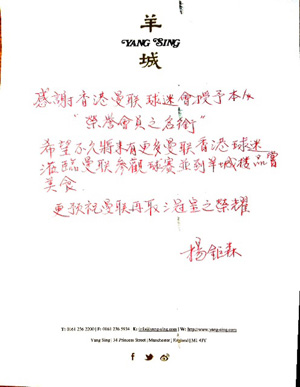 羊
YANG SING
城
感謝香港曼联球迷會授予本人
"榮誉會員之名銜"
希望不久將来有更多曼联香港球迷
蒞臨曼联參觀球賽並到羊城樓品嘗
美食.
更预祝曼联再取温皇之榮耀
楊鉅森
T: 0161 236 2200 | F: 0161 236 5934 E: info@yang-sing.com | W: http://www.yang-sing.com
Yang Sing | 34 Princess Street | Manchester | England | M1 4FC